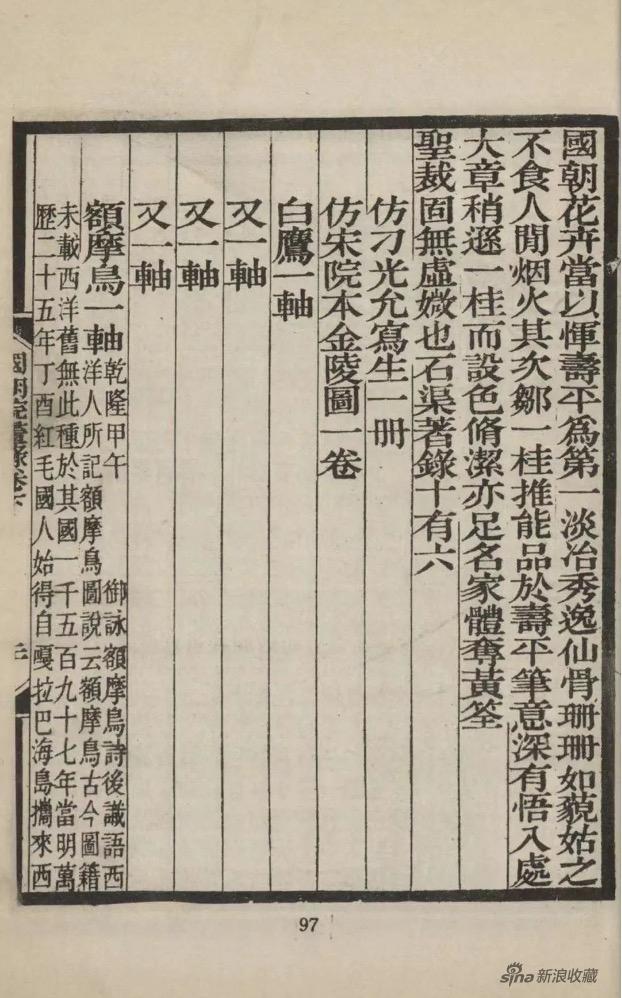 國朝花卉當以惲壽平爲第一淡冶秀逸仙骨珊珊如藐姑之
不食人閒烟火其次鄒一桂推能品於壽平筆意深有悟入處
大章稍遜一桂而設色脩潔亦足名家體奪黃筌
聖裁固無虛媺也石渠著錄十有六
仿刁光允寫生一冊
仿宋院本金陵圖一卷
白鷹一軸
又一軸
又一軸
又一軸
額摩鳥一軸 乾隆甲午 御詠額摩鳥詩後識語西
洋人所記額摩鳥圖說云額摩鳥古今圖籍
未載西洋舊無此種於其國一千五百九十七年當明萬
歷二十五年丁酉紅毛國人始得自嘎拉巴海島攜來西
國朝院畫錄卷下
97
sina 新浪收藏